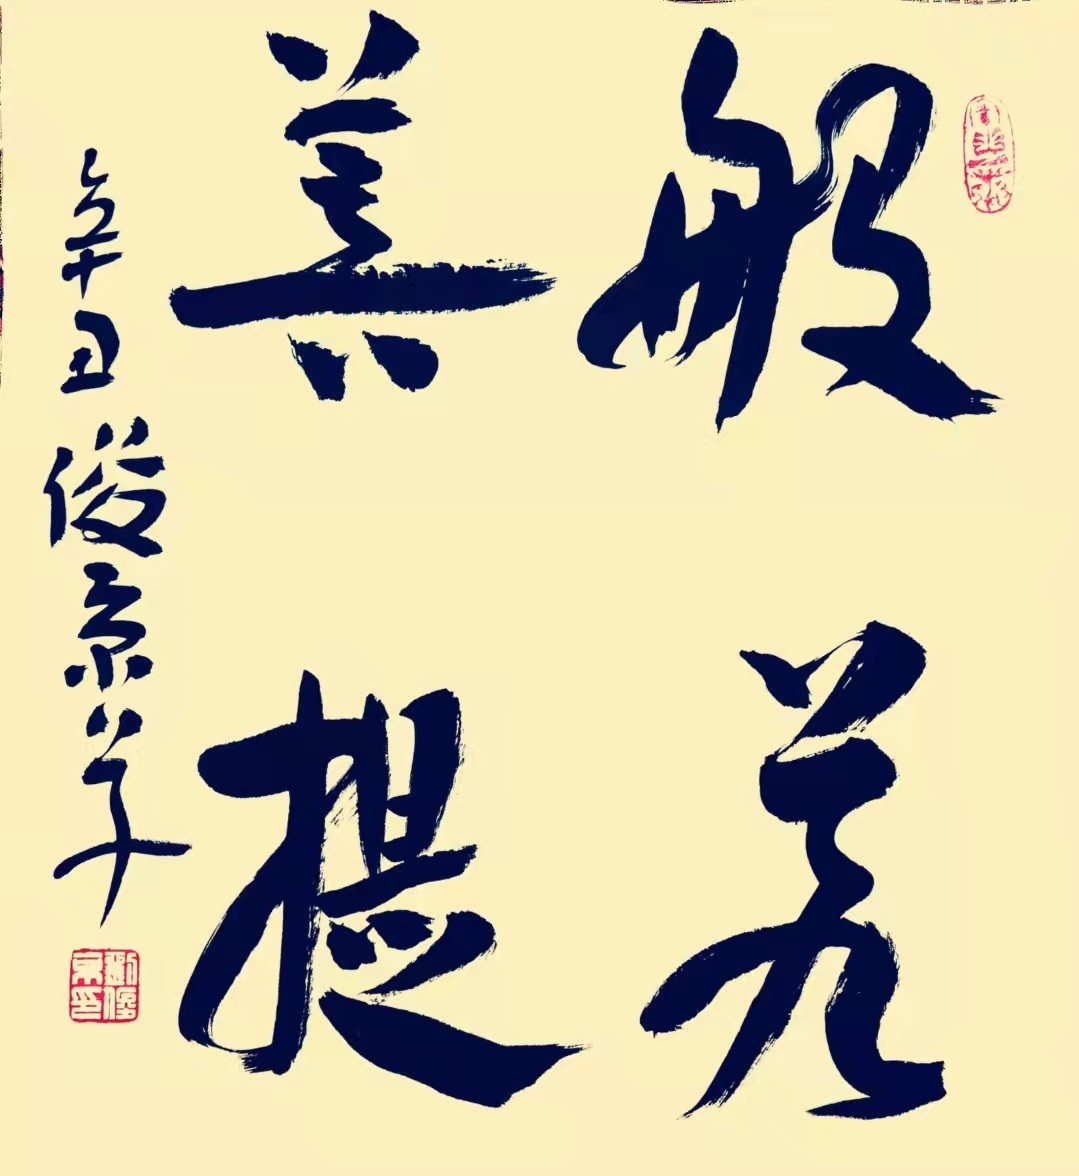 般若
菩提
辛丑俊京草
劉俊
京印